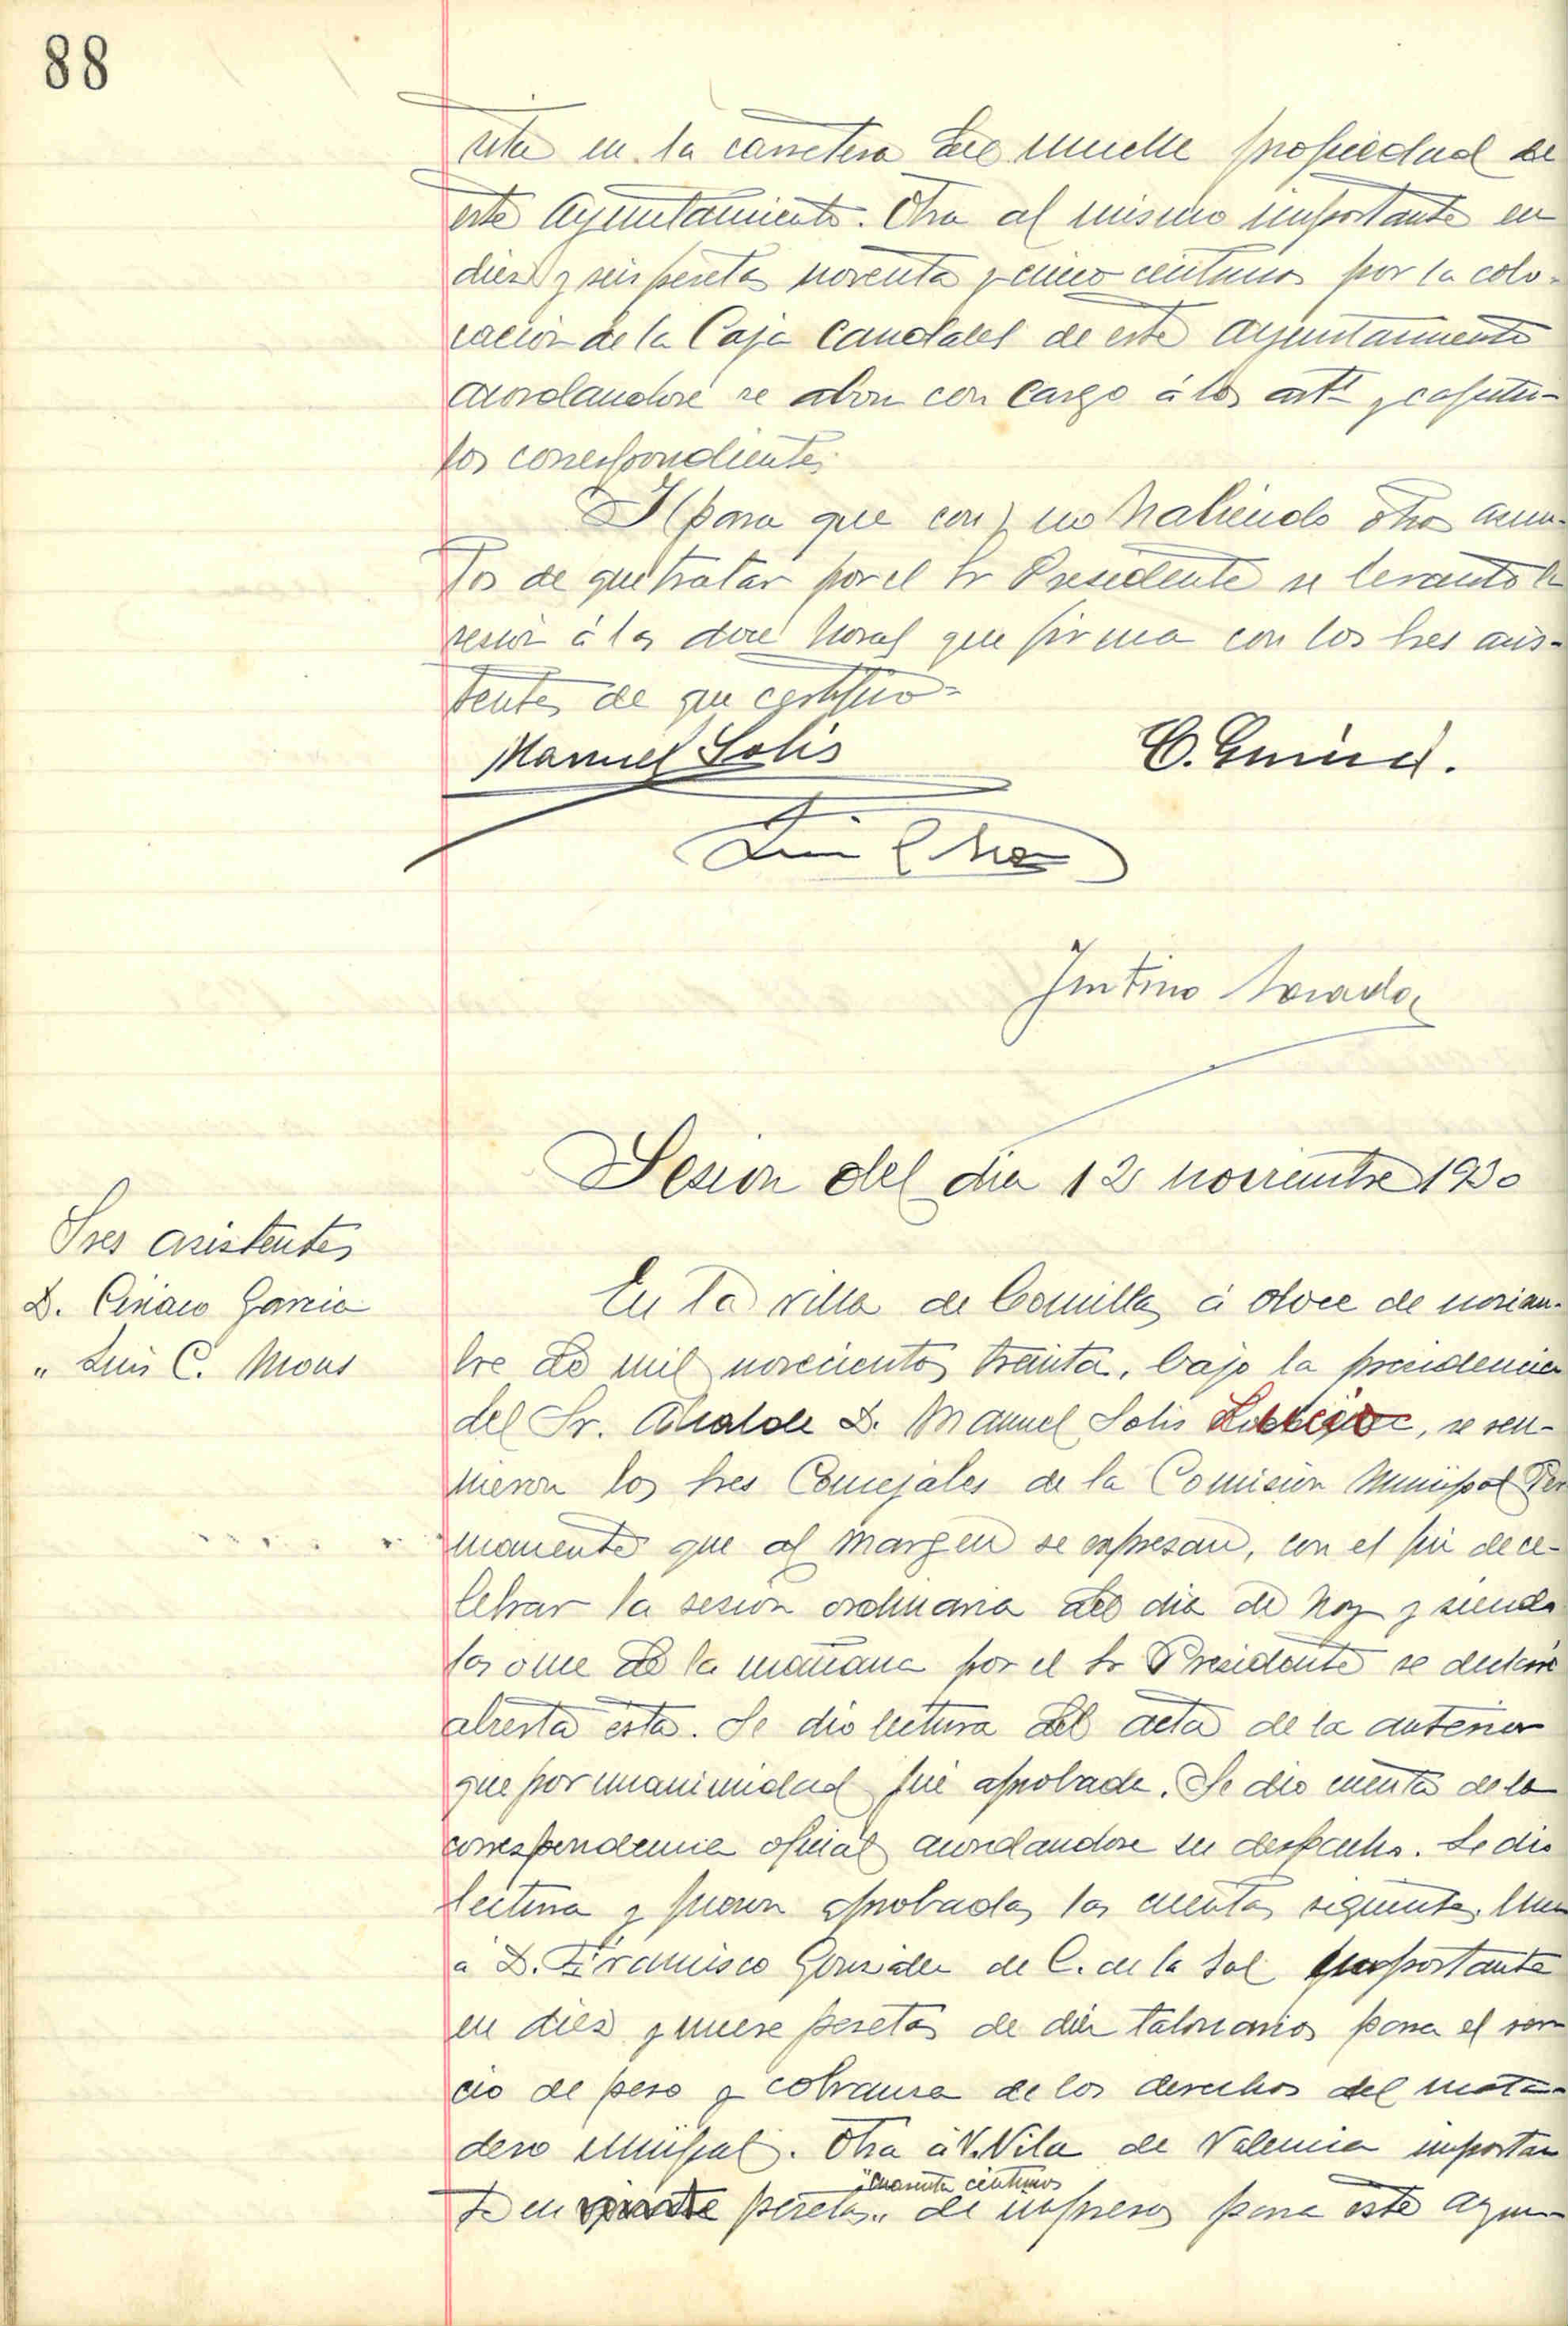 88
sita en la carretera del muelle propiedad de
este Ayuntamiento. Otra al mismo importante en
diez y seis pesetas noventa y cinco centimos por la colo-
cacion de la Caja Caudales de este Ayuntamiento
acordandose se abon con cargo á los artˢ y capitu-
los correspondientes
Y para que con y no habiendo otros asun-
tos de que tratar por el Sr Presidente se levantó la
sesion á las doce horas que firma con los Sres asis-
tentes de que certifico=
Manuel Solis
C.
Luis C Mons
Sesion del dia 12 noviembre 1930
Sres asistentes
D. Ciriaco Garcia
" Luis C. Mons
En la villa de Comillas á doce de noviem-
bre de mil novecientos treinta, bajo la presidencia
del Sr. Alcalde D. Manuel Solis, se reu-
nieron los Sres Concejales de la Comision Municipal Per
manente que al margen se expresan, con el fin de ce-
lebrar la sesion ordinaria del dia de hoy y siendo
las once de la mañana por el Sr Presidente se declaró
abierta esta. Se dio lectura del acta de la anterior
que por unanimidad fué aprobada. Se dio cuenta de la
correspondencia oficial acordandose su despacho. Se dio
lectura y fueron aprobadas las cuentas siguientes. Una
á D. Francisco Gonzalez de C. de la Sal importante
en diez y nueve pesetas de diez talonarios para el servi
cio de peso y cobranza de los derechos del mata-
dero Municipal. Otra á V. Vila de Valencia importan
te en pesetas " de impresos para este Ayun
" cuarenta centimos